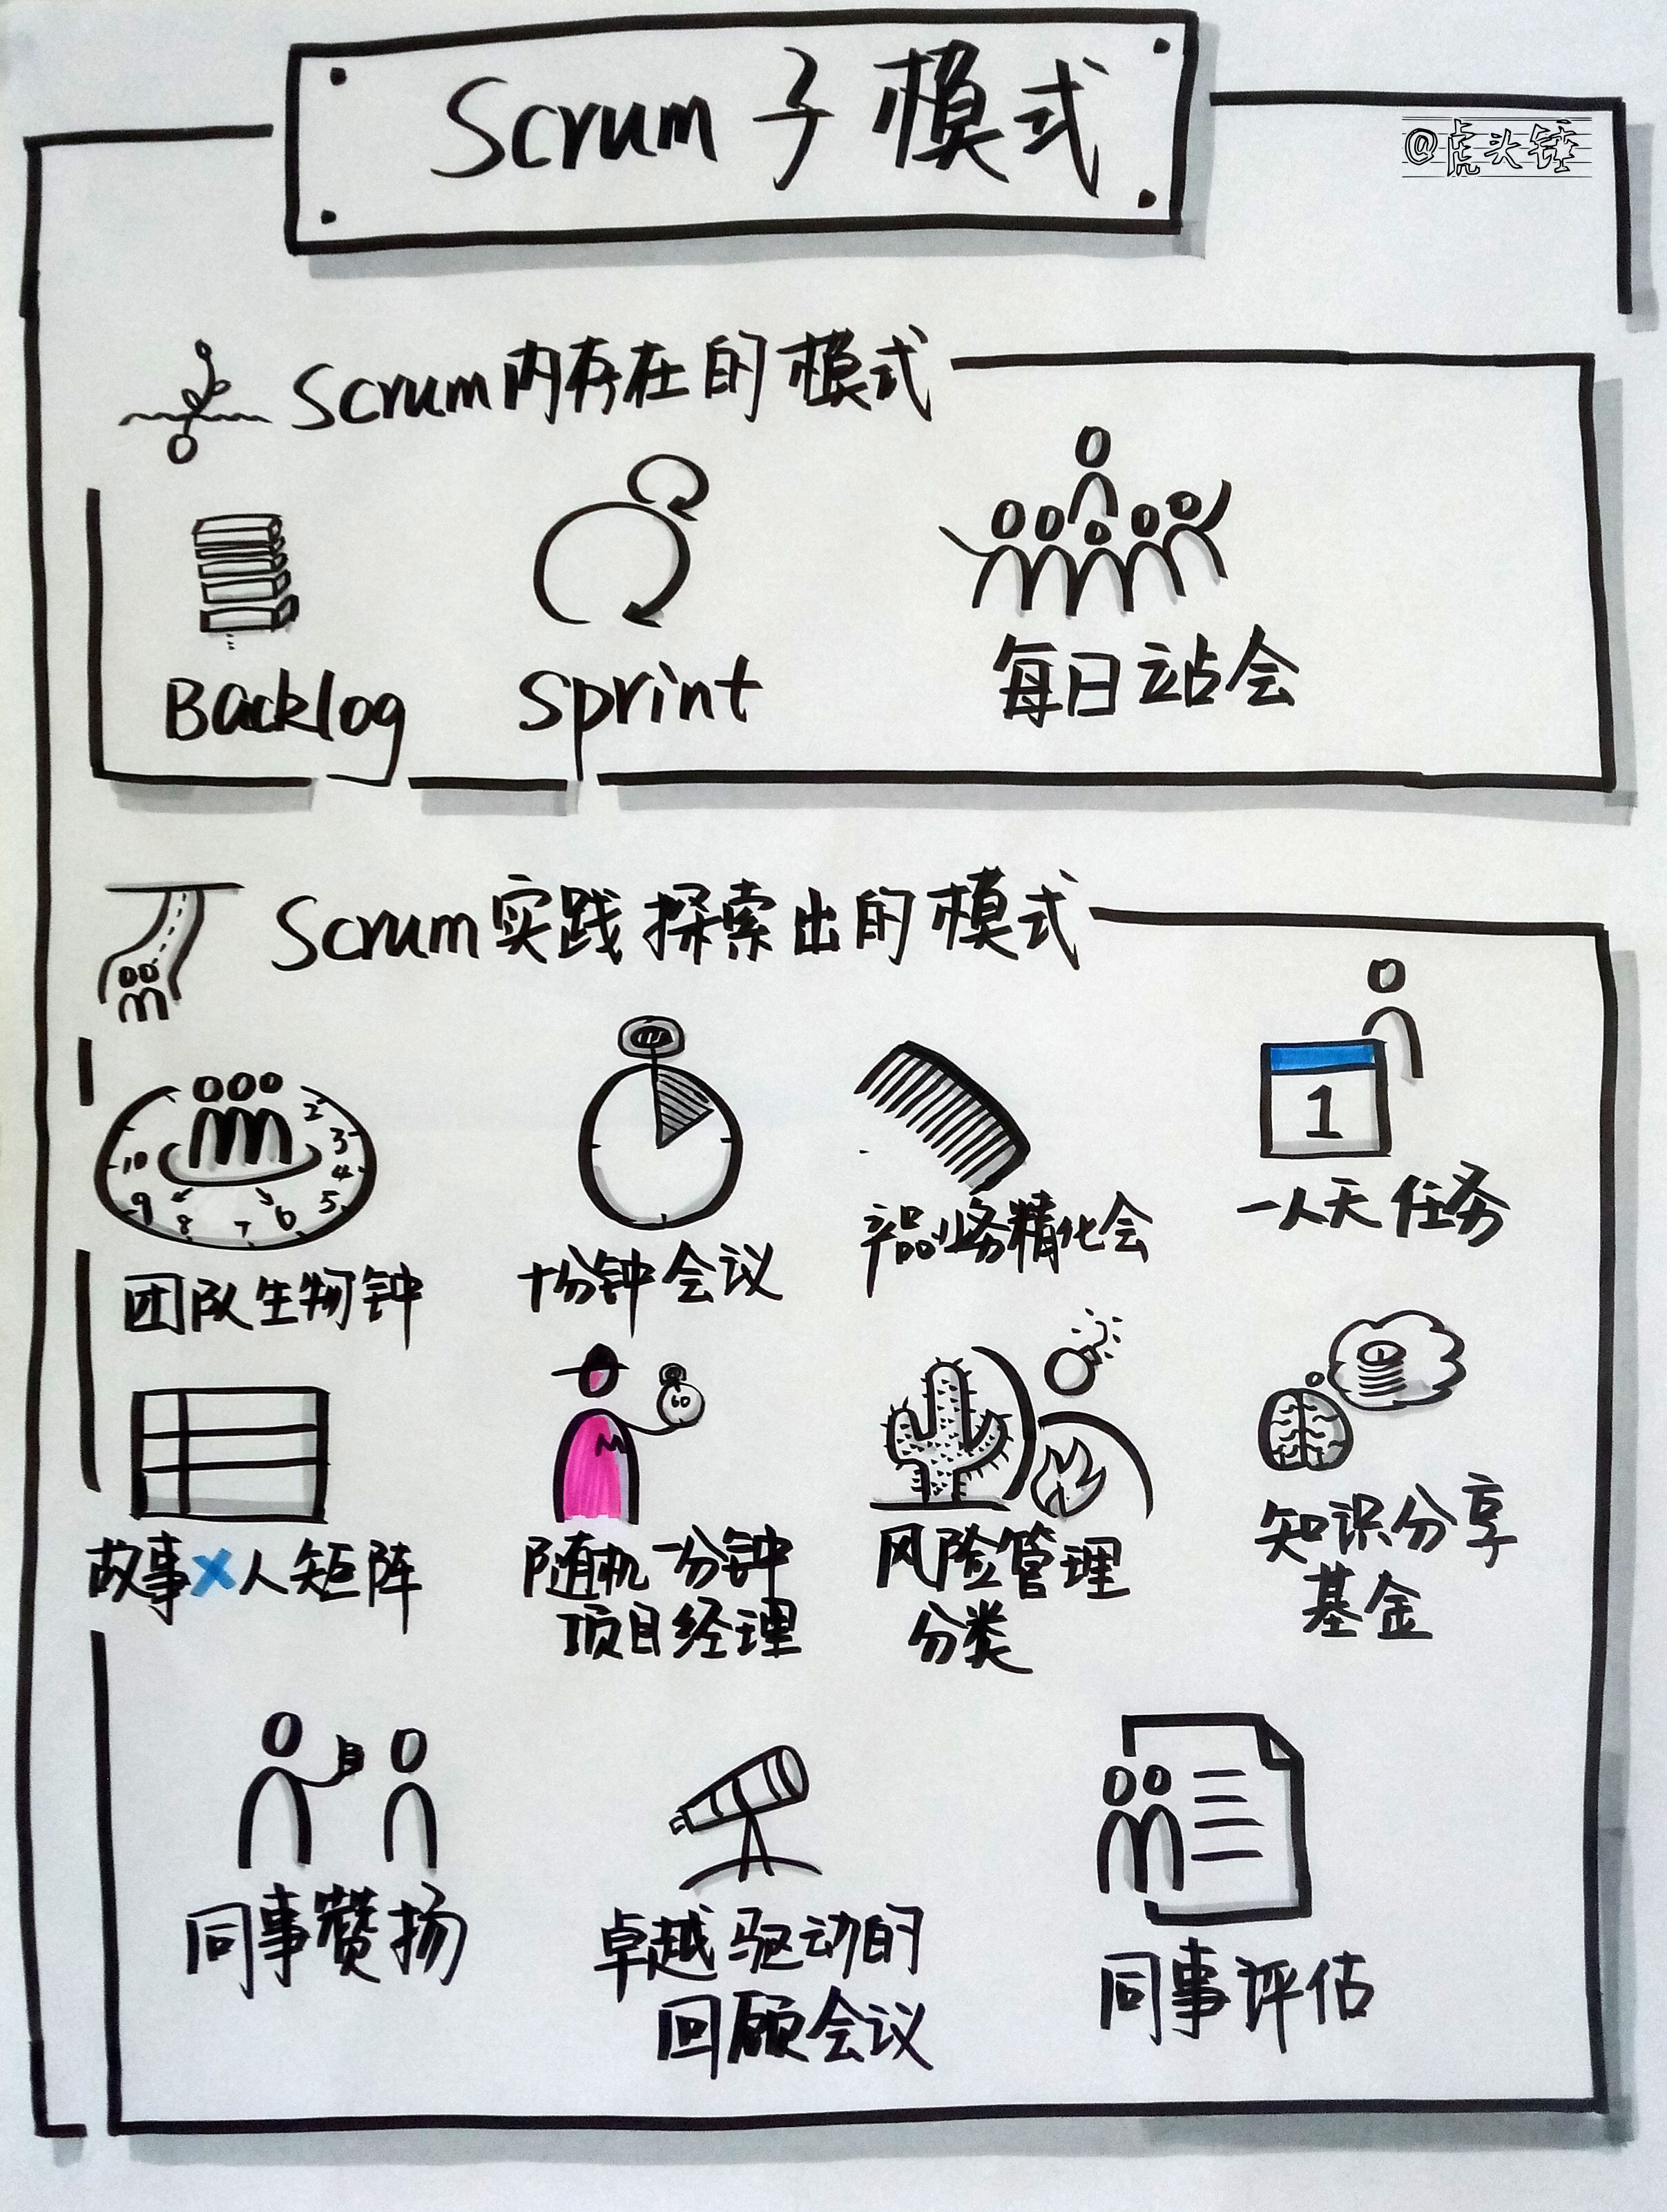 Scrum 子模式
@虎头锤
Scrum内存在的模式
Backlog
Sprint
每日站会
Scrum实践探索出的模式
2
3
4
5
6
7
8
9
10
团队生物钟
十分钟会议
产品业务精化会
1
一人天任务
故事×人矩阵
60
随机一分钟
项目经理
风险管理
分类
1
知识分享
基金
同事赞扬
卓越驱动的
回顾会议
同事评估